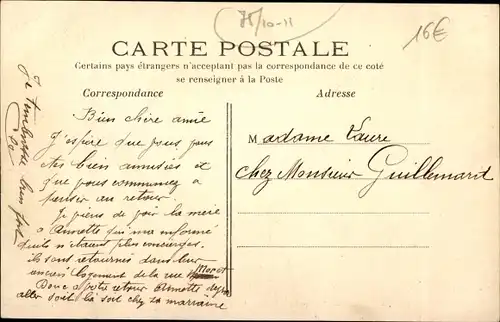 75/10-11
16€
CARTE POSTALE
Certains pays étrangers n'acceptant pas la correspondance de ce coté
se renseigner à la Poste
Correspondance
Adresse
Bien chère amie
J'espère que vous vous
êtes bien amusés et
que vous commencez à
penser au retour.
Je viens de voir la mère
à Annette qui m'a informé
qu'ils n'étaient plus concierges.
ils sont retournés dans leur
ancien logement de la rue Moret
Donc a votre retour Annette
aller soit là soit chez sa marraine
Je t'embrasse bien fort
Madame Laure
chez Monsieur Guillemard